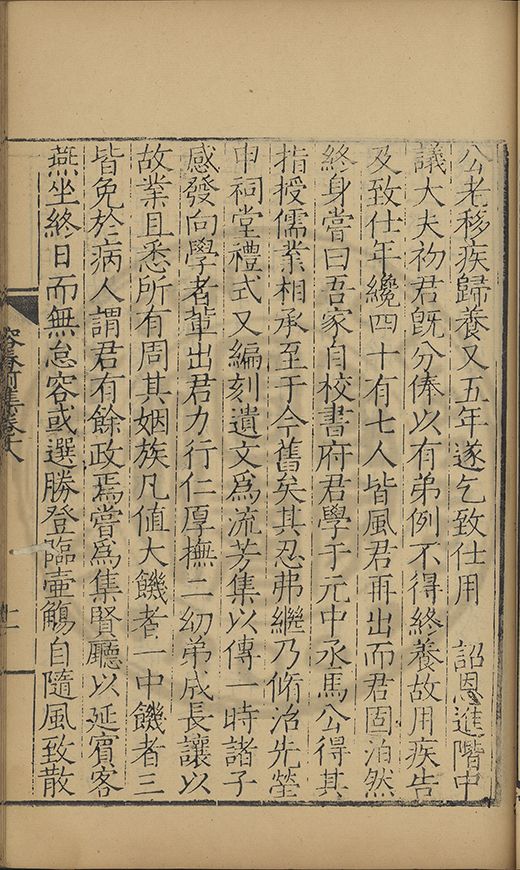 公老移疾歸養又五年遂乞致仕用　詔恩進階中
議大夫初君旣分俸以有弟例不得終養故用疾告
及致仕年纔四十有七人皆風君再出而君固泊然
終身嘗曰吾家自校書府君學于元中丞馬公得其
指授儒業相承至于今舊矣其忍弗繼乃脩治先塋
申祠堂禮式又編刻遺文爲流芳集以傳一時諸子
感發向學者輩出君力行仁厚撫二幼弟成長讓以
故業且悉所有周其姻族凡值大饑者一中饑者三
皆免於病人謂君有餘政焉嘗爲集賢廳以延賓客
燕坐終日而無怠容或選勝登臨壷觴自隨風致散